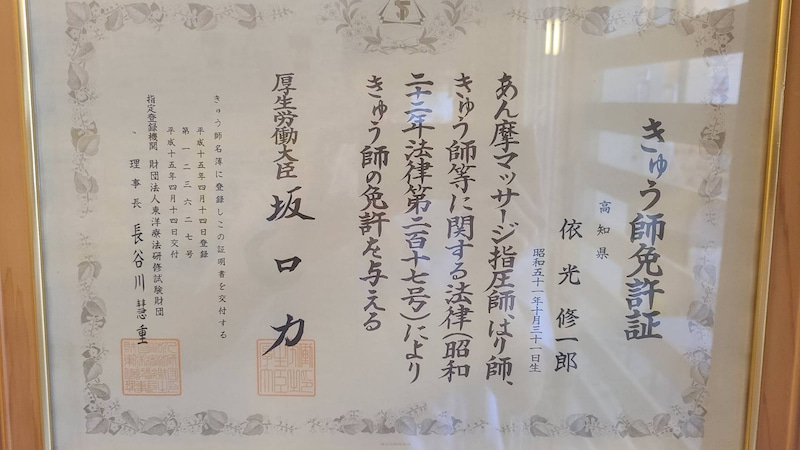 きゅう師免許証
高知県
依光修一郎
昭和五十一年十月三十一日生
あん摩マッサージ指圧師、はり師、
きゅう師等に関する法律(昭和
二十二年法律第二百十七号)により
きゅう師の免許を与える
厚生労働大臣 坂口力
きゅう師名簿に登録しこの証明書を交付する
平成十五年四月十四日登録
第一二三六二七号
平成十五年四月十四日交付
指定登録機関 財団法人東洋療法研修試験財団
理事長 長谷川慧重